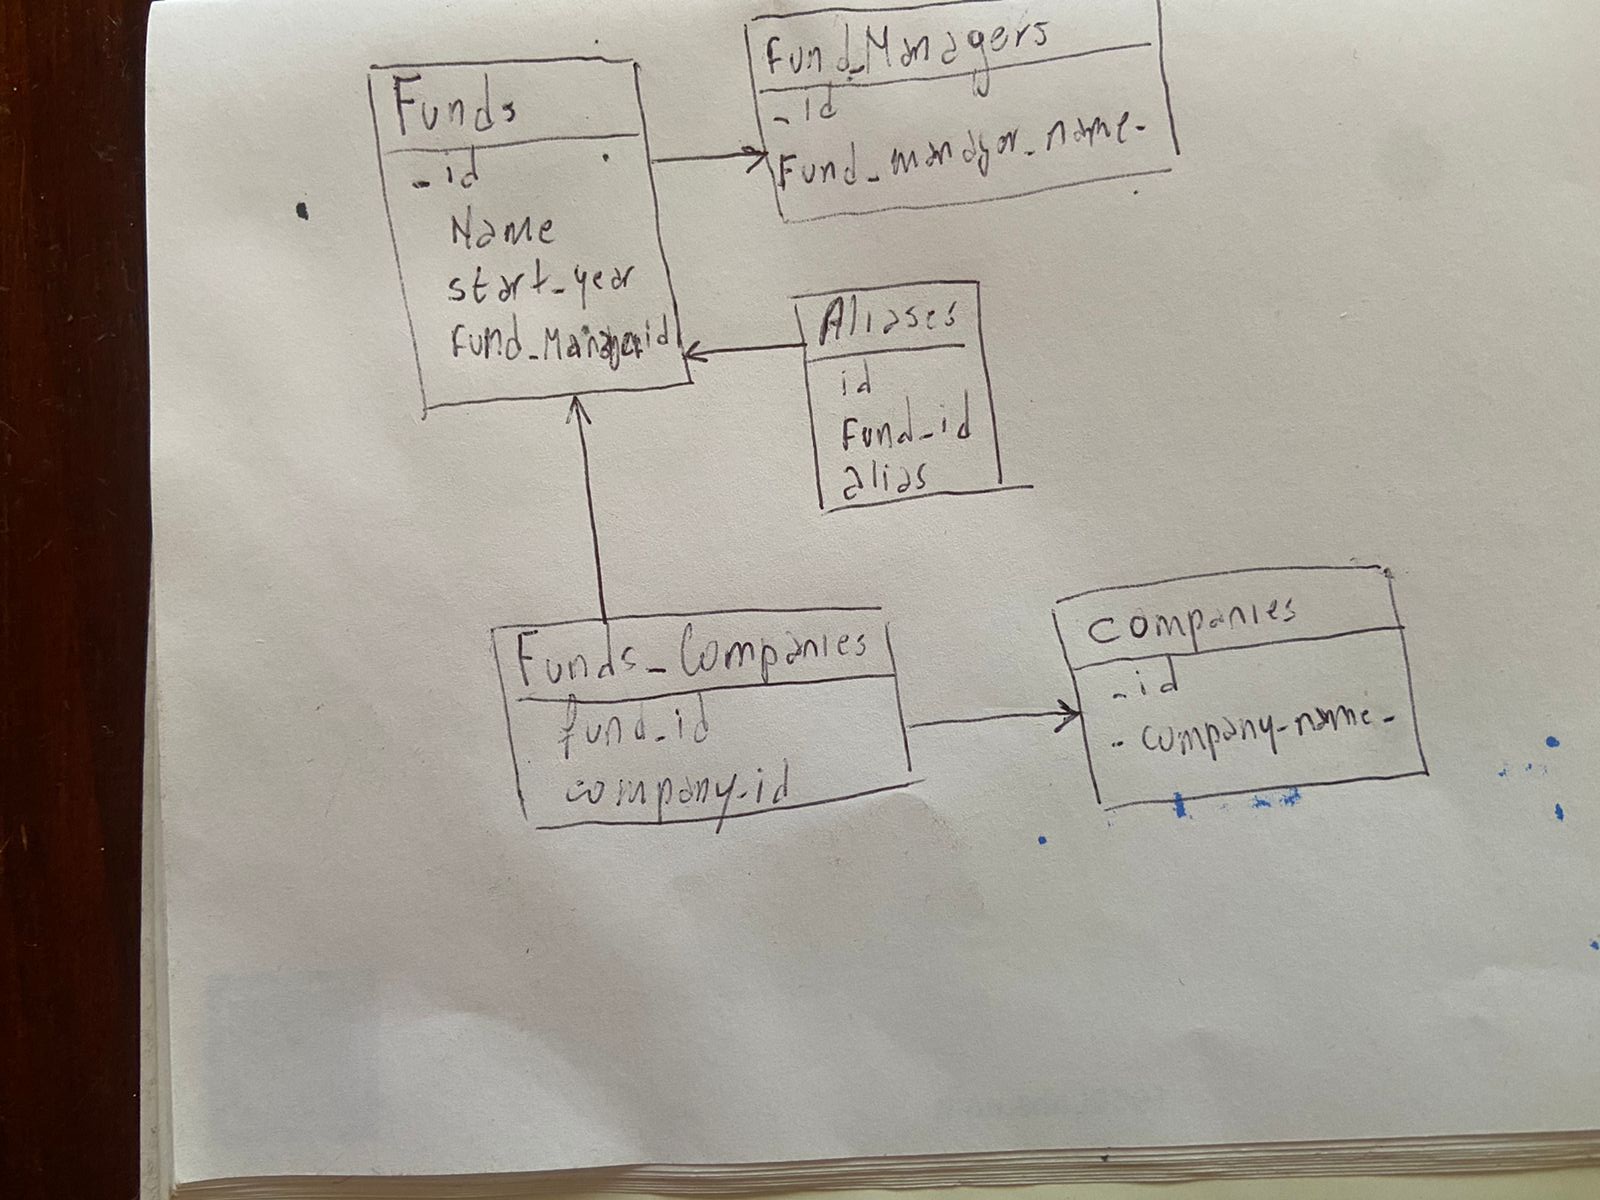 Funds
- id
Name
start_year
Fund_Managerid
Fund_Managers
- id
Fund_manager_name-
Aliases
id
Fund_id
alias
Funds_Companies
fund_id
company_id
companies
- id
- company_name-